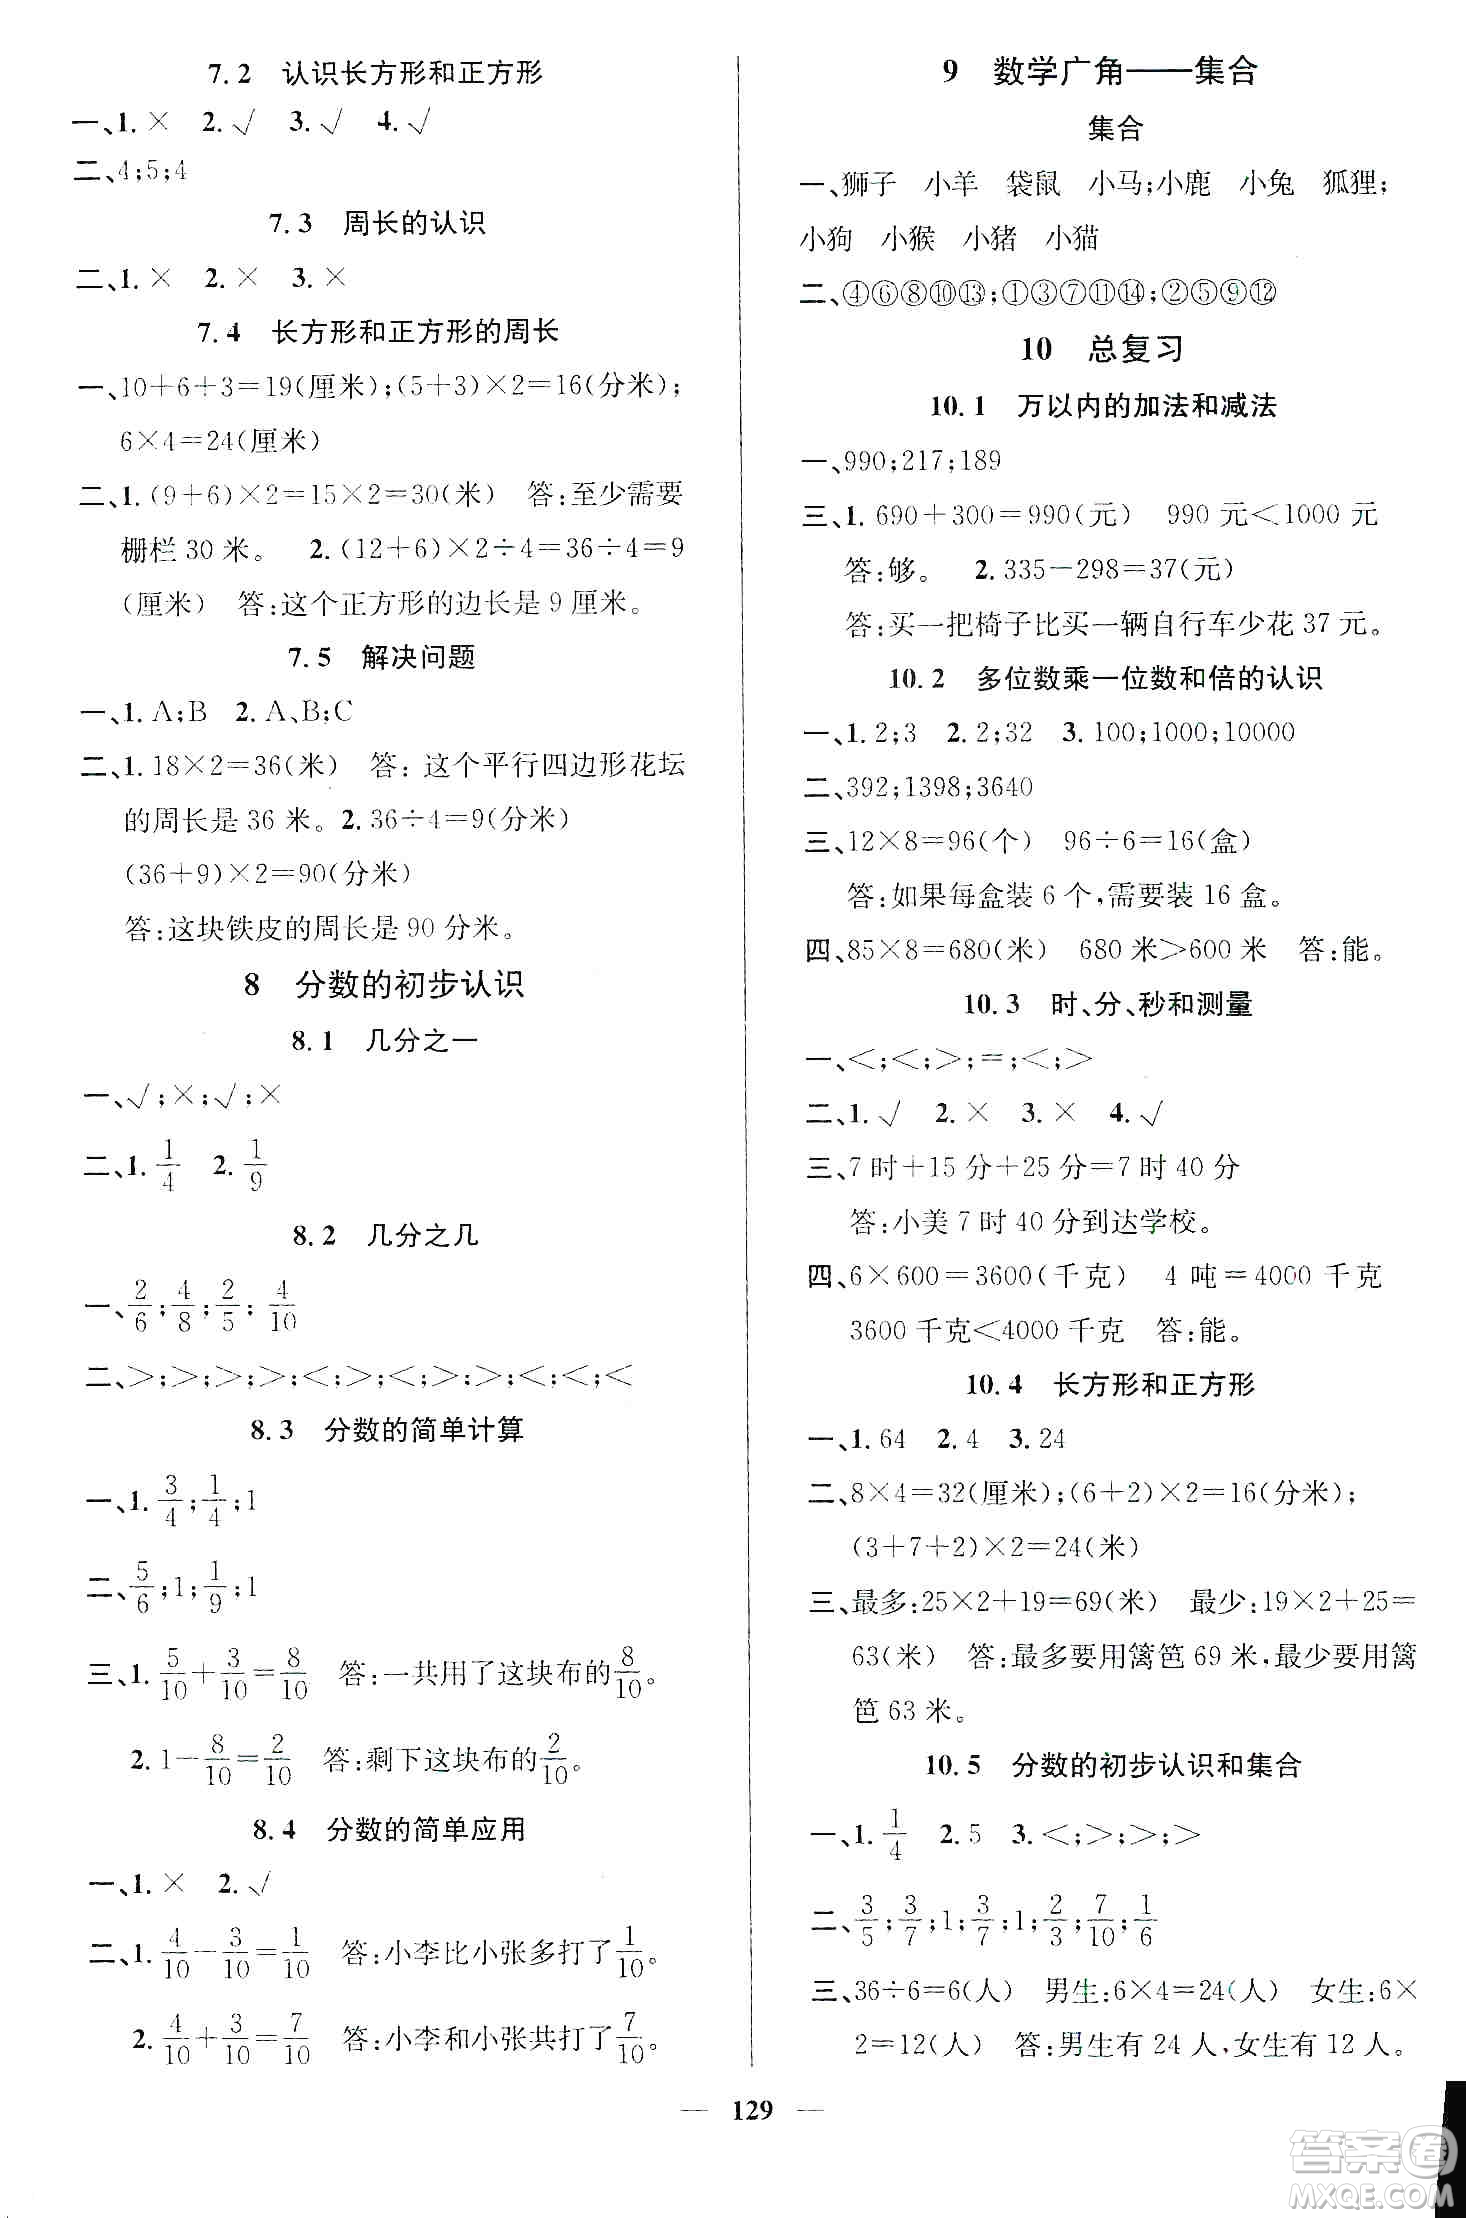 7.2 认识长方形和正方形
一、1. × 2. √ 3. √ 4. √
二、4;5;4
7.3 周长的认识
二、1. × 2. × 3. ×
7.4 长方形和正方形的周长
一、10+6+3=19(厘米);(5+3)×2=16(分米);
6×4=24(厘米)
二、1. (9+6)×2=15×2=30(米) 答:至少需要
栅栏 30 米。 2. (12+6)×2÷4=36÷4=9
(厘米) 答:这个正方形的边长是 9 厘米。
7.5 解决问题
一、1. A;B 2. A、B;C
二、1. 18×2=36(米) 答: 这个平行四边形花坛
的周长是 36 米。2. 36÷4=9(分米)
(36+9)×2=90(分米)
答:这块铁皮的周长是 90 分米。
8 分数的初步认识
8.1 几分之一
一、√;×;√;×
二、1. 1/4 2. 1/9
8.2 几分之几
一、2/6;4/8;2/5;4/10
二、>;>;>;>;<;>;<;>;>;<;<;<
8.3 分数的简单计算
一、1. 3/4;1/4;1
二、5/6;1;1/9;1
三、1. 5/10+3/10=8/10 答:一共用了这块布的8/10。
2. 1-8/10=2/10 答:剩下这块布的2/10。
8.4 分数的简单应用
一、1. × 2. √
二、1. 4/10-3/10=1/10 答:小李比小张多打了1/10。
2. 4/10+3/10=7/10 答:小李和小张共打了7/10。
9 数学广角——集合
集合
一、狮子 小羊 袋鼠 小马;小鹿 小兔 狐狸;
小狗 小猴 小猪 小猫
二、④⑥⑧⑩⑬;①③⑦⑪⑭;②⑤⑨⑫
10 总复习
10.1 万以内的加法和减法
一、990;217;189
三、1. 690+300=990(元) 990 元<1000 元
答:够。 2. 335-298=37(元)
答:买一把椅子比买一辆自行车少花 37 元。
10.2 多位数乘一位数和倍的认识
一、1. 2;3 2. 2;32 3. 100;1000;10000
二、392;1398;3640
三、12×8=96(个) 96÷6=16(盒)
答:如果每盒装 6 个,需要装 16 盒。
四、85×8=680(米) 680 米>600 米 答:能。
10.3 时、分、秒和测量
一、<;<;>;=;<;>
二、1. √ 2. × 3. × 4. √
三、7 时+15 分+25 分=7 时 40 分
答:小美 7 时 40 分到达学校。
四、6×600=3600(千克) 4 吨=4000 千克
3600 千克<4000 千克 答:能。
10.4 长方形和正方形
一、1. 64 2. 4 3. 24
二、8×4=32(厘米);(6+2)×2=16(分米);
(3+7+2)×2=24(米)
三、最多:25×2+19=69(米) 最少:19×2+25=
63(米) 答:最多要用篱笆 69 米,最少要用篱
笆 63 米。
10.5 分数的初步认识和集合
一、1. 1/4 2. 5 3. <;>;>;>
二、3/5;3/7;1;3/7;1;2/3;7/10;1/6
三、36÷6=6(人) 男生:6×4=24(人) 女生:6×
2=12(人) 答:男生有 24 人,女生有 12 人。
— 129 —
答案圈
MXQE.COM